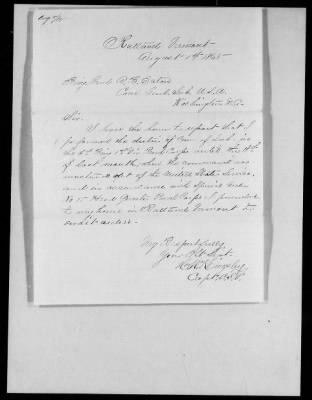 Rutland Vermont
August 1st 1865
Brig Genl A. B. Eaton
Com. Genl. Sub. U.S.A.
Washington D.C.
Sir.
I have the honor to report that I
performed the duties of Com. of Sub. in
the 2d Brig 1st Div Prov Corps until the
of last month, when the command was
mustered out of the United States Service,
and in accordance with Special Order
No Head Quarters Corps I proceeded
to my home in Rutland Vermont to
await orders.
Very Respectfully
Your Obt Servt
Kingsley
Capt. C.S.